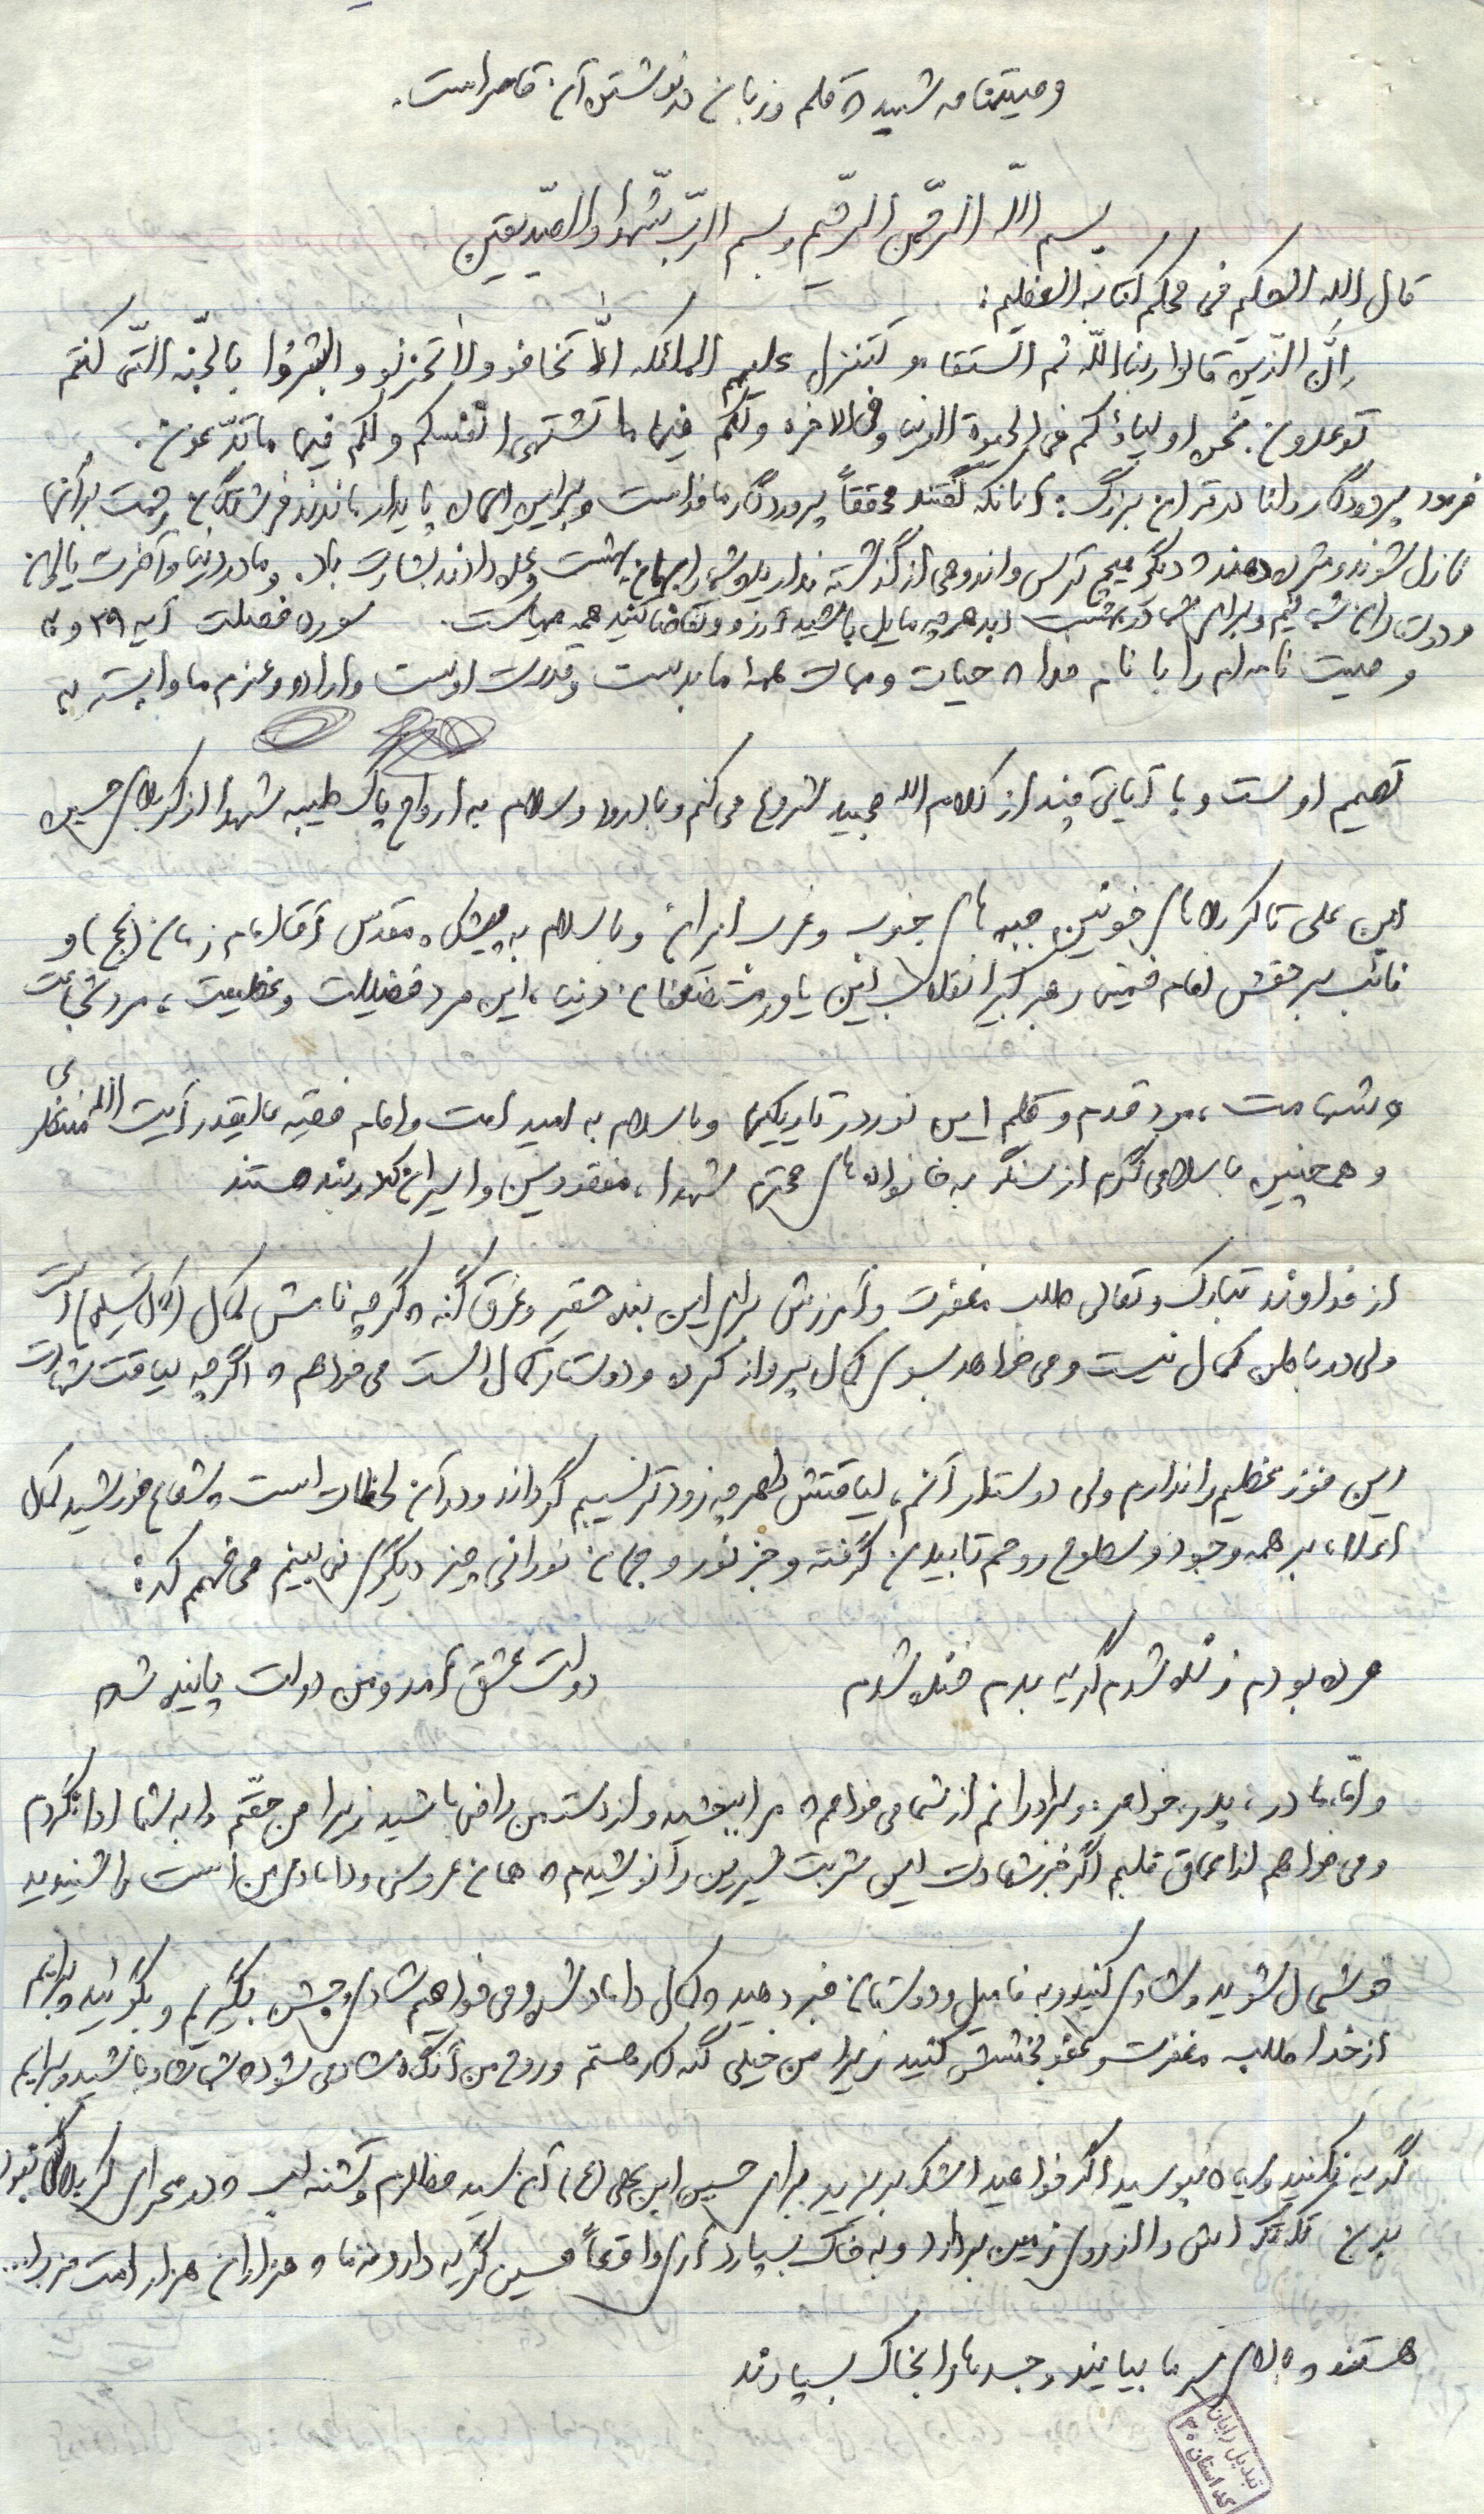 وصیتنامه شهید که قلم و زبان در نوشتن آن قاصر است.
بسم الله الرّحمن الرّحیم و بسم الربّ شّهدا والصّدیقین
قال الله الحکیم فی محکم کتابه العظیم:
اِنَّ الّذین قالوا ربنا اللّه ثم الستقامو تتنزل علیهم الملائکه الّا تخافو ولا تحزنو و البشرُوا بالجنّه الّتی کنتم
توعدون. نحن اولیاؤکم فی الحیوة الدنیا و فی الاخره و لکم فیها ما تشتهی انفسکم و لکم فیها ما تدّعون.
فرمود پروردگار دانا در قرآن بزرگ: آنانکه گفتند محققاً پروردگار ما خداست و بر این ایمان پایدار ماندند فرشتگان رحمت بر آنها
نازل شوند و مژده دهند که دیگر هیچ ترس و اندوهی از گذشته ندارید و شما را به همان بهشت وعده دادند بشارت باد. و ما در دنیا و آخرت یار این
و دوستداران شمائیم و برای شما در بهشت ابد هر چه مایل باشید آرزو و تقاضا کنید همه مهیاست. سوره فصلت آیه ۳۹ و ۴۰
وصیت نامه ام را با نام خدا که حیات و ممات همهٔ ما بدست و قدرت اوست و اراده و عزم ما وابسته به
تصمیم اوست و با آیاتی چند از کلام الله مجید شروع می کنم و با درود و سلام به ارواح پاک طیبه شهدا از کربلای حسین
ابن علی تا کربلاهای خونین جبهه های جنوب و غرب ایران و با سلام به پیشگاه مقدس آقا امام زمان (عج) و
نائب برحقش امام خمینی رهبر کبیر انقلاب این یاور مستضعفان دنیا، این مرد فضیلت و عظمت، مرد شجاعت
و شهامت، مرد قدم و قلم این نور در تاریکیها و با سلام به امید امت و امام فقیه عالیقدر آیت الله منتظری
و همچنین با سلامی گرم از سنگر به خانواده های محترم شهدا، مفقودین و اسیران که در بند هستند
از خداوند تبارک و تعالی طلب مغفرت و آمرزش برای این بنده حقیر و غرق گنه که گرچه نامش کمال (کمال تسلیم) است
ولی در باطن کمال نیست و می خواهد بسوی کمال پرواز کرده و دوستار کمال است می خواهم که اگر چه لیاقت شهادت
این فوز عظیم را ندارم ولی دوستدار آنم، لیاقتش را هرچه زودتر نسیبم گرداند و در آن لحظات است که شعاع خورشید کمال
اعلاء بر همه وجود و سطوح روحم تابیدن گرفته و جز نور و جهان نورانی چیز دیگری نمی بینم می فهمم که:
مرده بودم زنده شدم گریه بدم خنده شدم دولت عشق آمد و من دولت پاینده شدم
و امّا مادر، پدر، خواهر، و برادرانم از شما می خواهم که مرا ببخشید و از دست من راضی باشید زیرا من حقّم را به شما ادا نکردم
و می خواهم از اعماق قلبم اگر خبر شهادت این شربت شیرین را نوشیدم که همان عروسی و دامادی من است را شنیدید
خوشحال شوید و شادی کنید و به فامیل و دوستان خبر دهید که کمال داماد شده و می خواهیم شادی و جشن بگیریم و بگوئید برایم
از خدا طلب مغفرت و عفو بخشش کنید زیرا من خیلی گنه کار هستم و روح من آنگاه شاد می شود که شما شاد باشید و برایم
گریه نکنید و سیاه نپوسید اگر خواهید اشک بریزید برای حسین ابن علی (ع) آن سید مظلوم و تشنه لب که در صحرای کربلا کسی نبود
بدن تکه تکه اش را از روی زمین بردارد و به خاک بسپارد آری واقعاً حسین گریه دارد نه ما که هزاران هزار امت حزب ا...
هستند که بالای سر ما بیایند و جسد ما را بخاک بسپارند
تبدیل رایانه
کد استان ۳۰